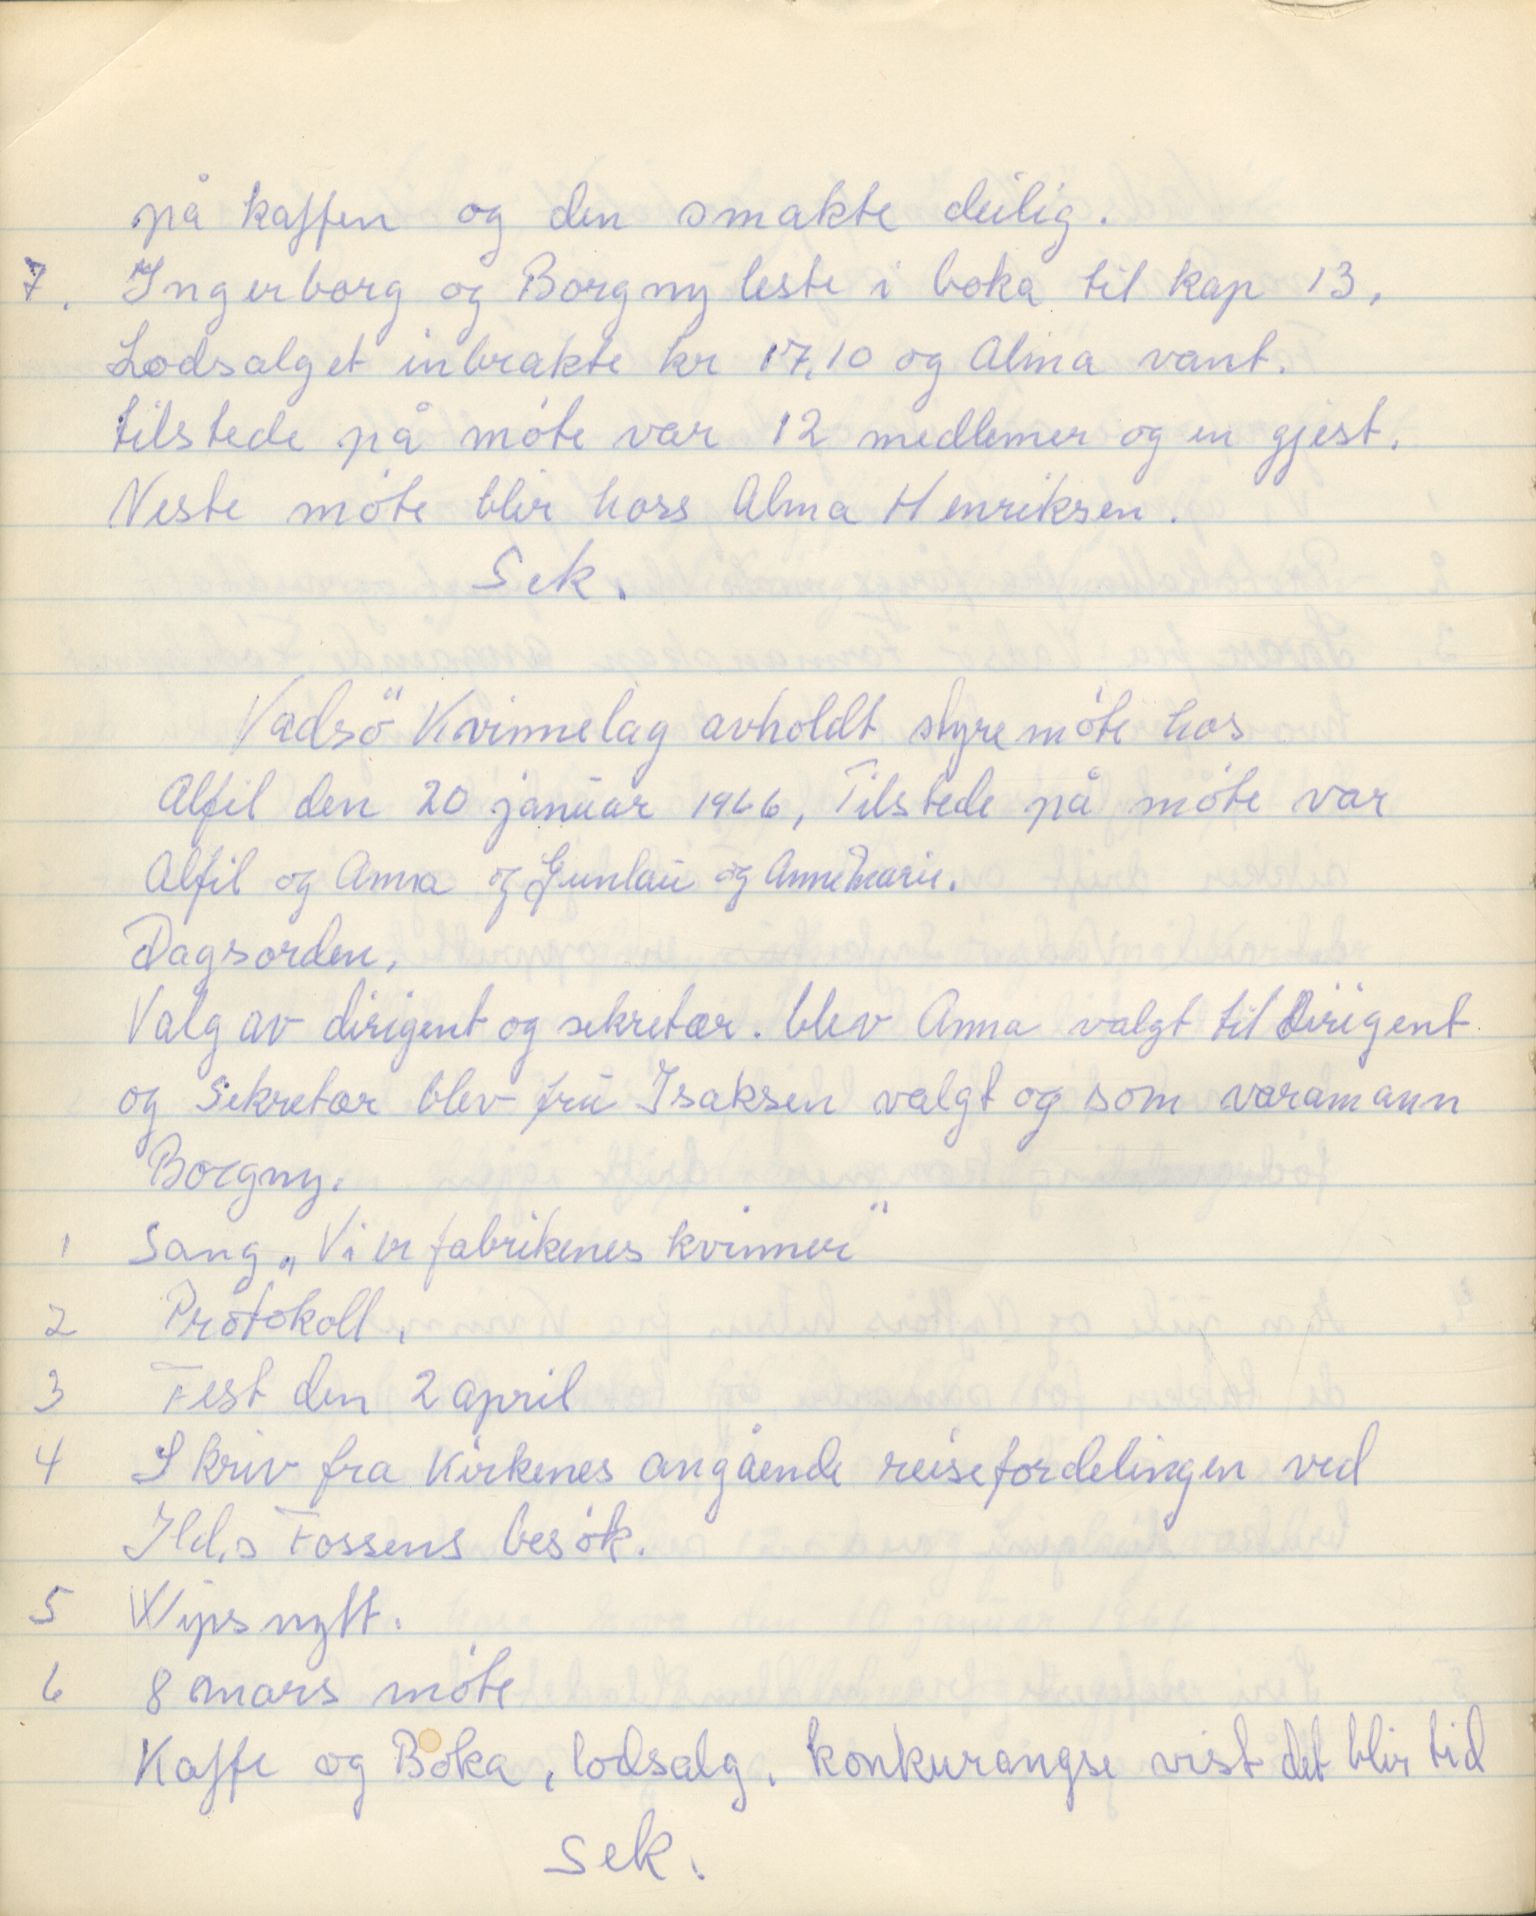 på kaffen og den smakte deilig.
7. Ingerborg og Borgny leste i boka til kap 13.
Lodsalget inbrakte kr 17,10 og Alma vant.
tilstede på möte var 12 medlemer og en gjest.
Neste möte blir hoss Alma Henriksen.
Sek.
Vadsö Kvinnelag avholdt styremöte hos
Alfil den 20 januar 1966, Tilstede på möte var
Alfil og Anna og Gunlau og AnneMarie.
Dagsorden,
Valg av dirigent og sekretær. blev Anna valgt til Dirigent
og Sekretær blev fru Isaksen valgt og som varamann
Borgny.
1 Sang „Vi er fabrikenes kvinner"
2 Protokoll.
3 Fest den 2 april
4 Skriv fra Kirkenes angående reisefordelingen ved
Fossens besök.
5 Wips nytt.
6 8 mars möte
Kaffe og Boka, lodsalg. konkurangse vist det blir tid
Sek.